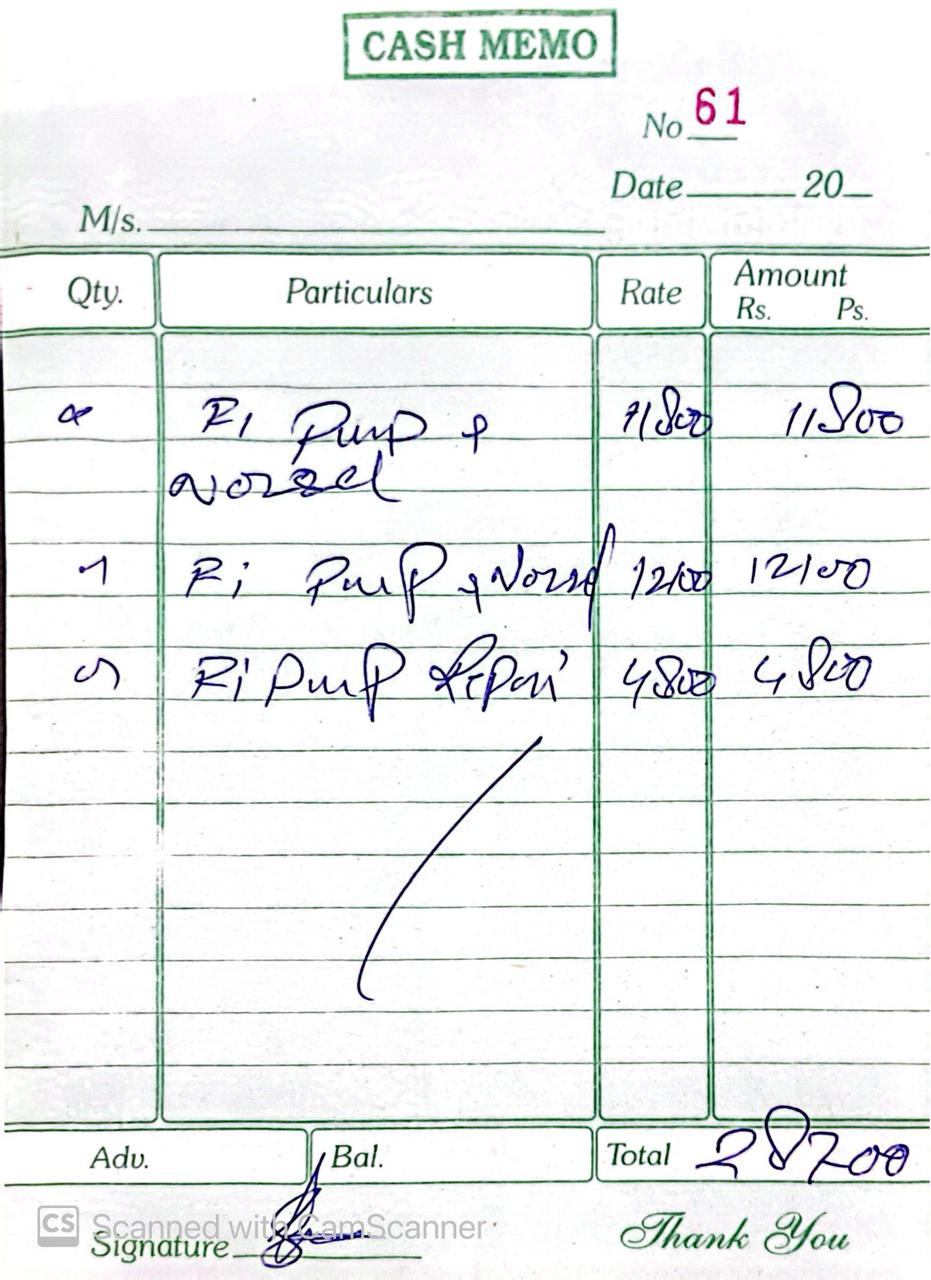 CASH MEMO
No 61
Date 20
M/s.
Qty. Particulars Rate Amount
Rs. Ps.
Ri Pump + 11800 11800
Nozzel
1 Ri Pump + Nozzel 12100 12100
Ri Pump Repair 4800 4800
Adv. Bal. Total 28700
CS Scanned with CamScanner
Signature Thank You